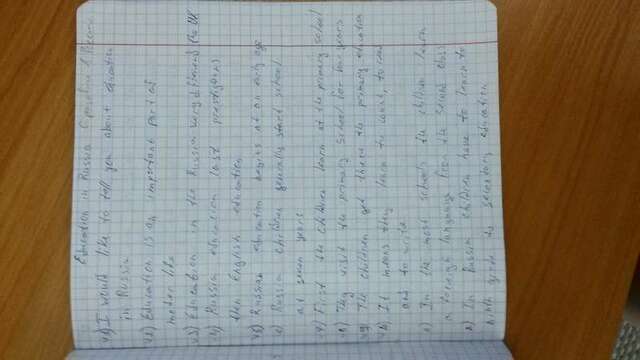 Education in Russia
I would like to tell you about education
in Russia
Education is an important part of
moder life
Education in the Russia very different
Russia education last prestigious
then English education
Russian education begins at an early age
Russia children generally start school
at seven years
First the children learn at the primary school
They visit the primary school for four years
The children get there the primary education
It means they learn to count, to read
and to write
In the most schools the children learn
a foreign language from the second class
In Russia children have to learn to
ninth grade to secondary education